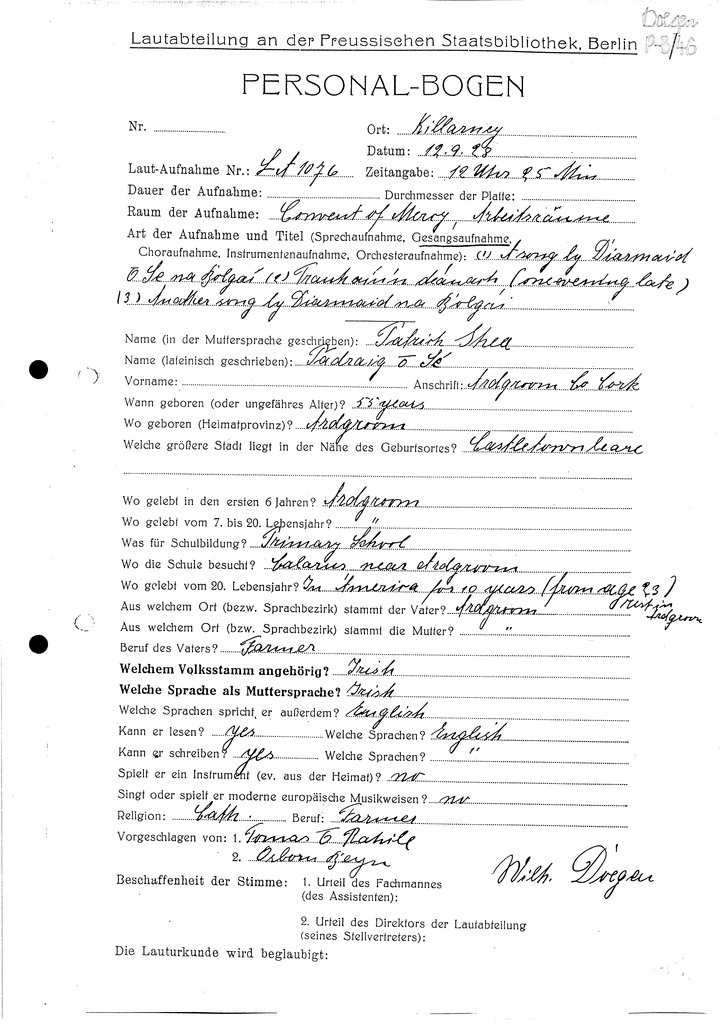 Doegen
P-8/46
Lautabteilung an der Preussischen Staatsbibliothek, Berlin
PERSONAL-BOGEN
Nr. Ort: Killarney
Datum: 12.9.28
Laut-Aufnahme Nr.: LA 1076 Zeitangabe: 12 Uhr 25 Min
Dauer der Aufnahme: Durchmesser der Platte:
Raum der Aufnahme: Convent of Mercy, Arbeitsräume
Art der Aufnahme und Titel (Sprechaufnahme, Gesangsaufnahme,
Choraufnahme, Instrumentenaufnahme, Orchesteraufnahme): (1) A song by Diarmaid
Ó Sé na Bolgaí (2) Tranhainín déanach, (one evening late)
(3) Another song by Diarmaid na Bolgaí
Name (in der Muttersprache geschrieben): Patrick Shea
Name (lateinisch geschrieben): Pádraig Ó Sé
Vorname: Anschrift: Ardgroom Co Cork
Wann geboren (oder ungefähres Alter)? 55 years
Wo geboren (Heimatprovinz)? Ardgroom
Welche größere Stadt liegt in der Nähe des Geburtsortes? Castletownbeare
Wo gelebt in den ersten 6 Jahren? Ardgroom
Wo gelebt vom 7. bis 20. Lebensjahr? "
Was für Schulbildung? Primary School
Wo die Schule besucht? Calarus near Ardgroom
Wo gelebt vom 20. Lebensjahr? In America for 10 years (from age 23)
rest in
Ardgroom
Aus welchem Ort (bezw. Sprachbezirk) stammt der Vater? Ardgroom
Aus welchem Ort (bzw. Sprachbezirk) stammt die Mutter? "
Beruf des Vaters? Farmer
Welchem Volksstamm angehörig? Irish
Welche Sprache als Muttersprache? Irish
Welche Sprachen spricht er außerdem? English
Kann er lesen? yes Welche Sprachen? English
Kann er schreiben? yes Welche Sprachen? "
Spielt er ein Instrument (ev. aus der Heimat)? no
Singt oder spielt er moderne europäische Musikweisen? no
Religion: Cath. Beruf: Farmer
Vorgeschlagen von: 1. Tomas Ó Rahille
2. Osborn Bergin
Beschaffenheit der Stimme: 1. Urteil des Fachmannes
(des Assistenten):
Wilh. Doegen
2. Urteil des Direktors der Lautabteilung
(seines Stellvertreters):
Die Lauturkunde wird beglaubigt: